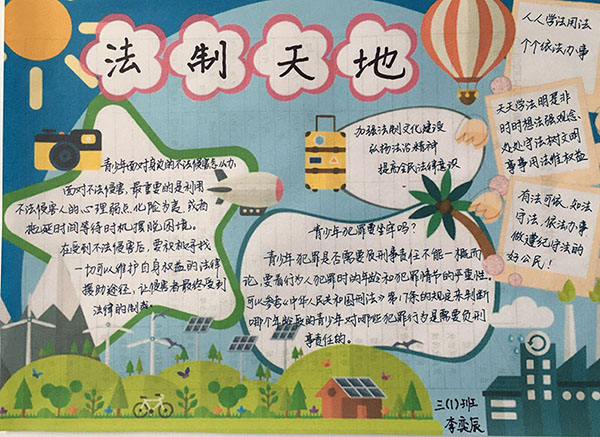 法制天地
人人学法用法
个个依法办事
天天学法明是非
时时想法强观念
处处守法树文明
事事用法维权益
有法可依、知法
守法、依法办事
做遵纪守法的
好公民！
加强法制文化建设
弘扬法治精神
提高全民法律意识
青少年面对身边的不法侵害怎么办
面对不法侵害,最重要的是利用
不法侵害人的心理弱点,化险为夷,或者
拖延时间等待时机摆脱困境。
在受到不法侵害后,要积极寻找
一切可以维护自身权益的法律
援助途径,让侵害者最终受到
法律的制裁。
青少年犯罪要坐牢吗?
青少年犯罪是否需要负刑事责任不能一概而
论,要看行为人犯罪时的年龄和犯罪情节的严重性,
可以参考《中华人民共和国刑法》第17条的规定来判断
哪个年龄段的青少年对哪些犯罪行为是需要负刑
事责任的。
三(1)班
李奕辰